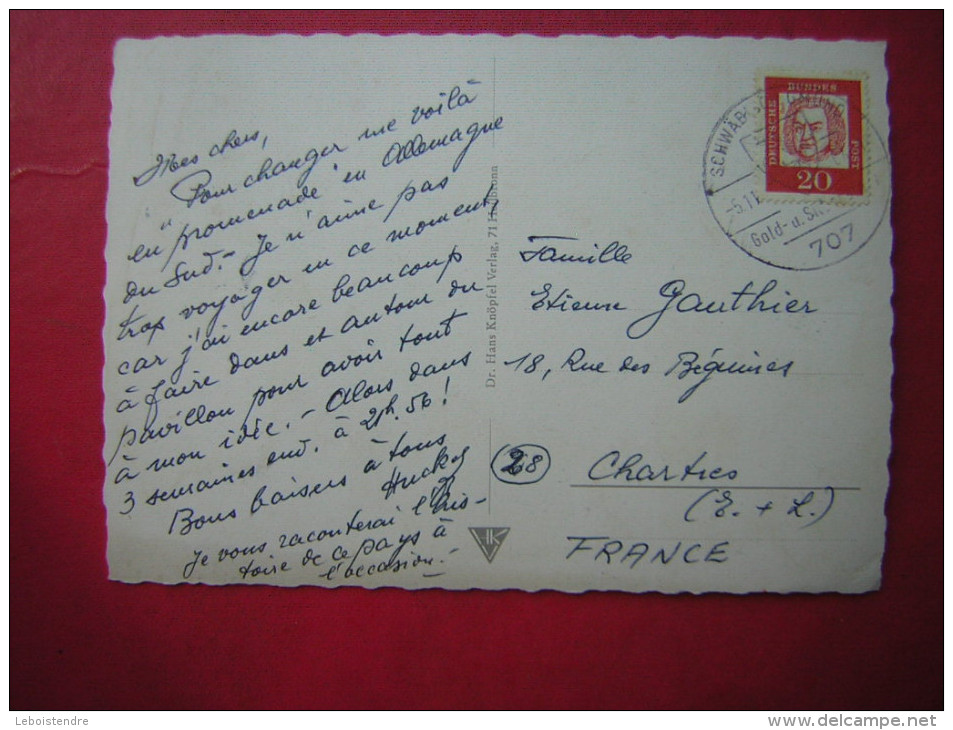 Mes chers,
Pour changer me voilà
en "promenade" en Allemagne
du Sud. - Je n'aime pas
trop voyager en ce moment,
car j'ai encore beaucoup
à faire dans et autour du
pavillon pour avoir tout
à mon idée. - Alors dans
3 semaines env. à 21h.56!
Bons baisers à tous
Hucky
Je vous raconterai l'his-
toire de ce pays à
l'occasion. -
Dr. Hans Knöpfel Verlag, 71 Heilbronn
HK
DEUTSCHE BUNDES POST
20
SCHWÄBISCH GMÜND
-5.11
Gold- u. Sil
707
Famille
Etienne Gauthier
18, Rue des Béguines
28
Chartres
(E. + L.)
FRANCE
Leboistendre
www.delcampe.net